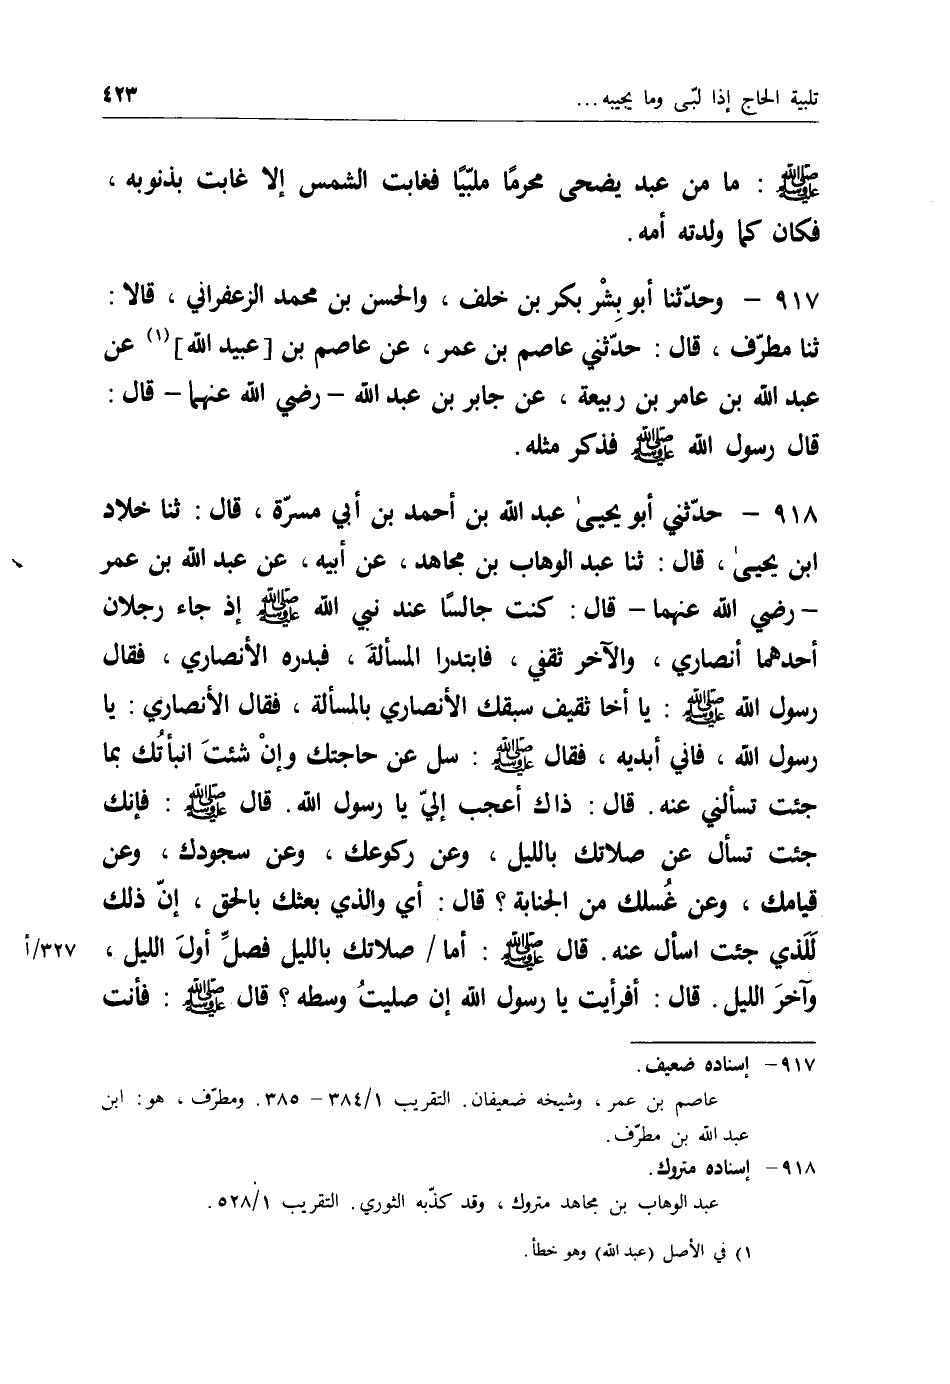 تلبية الحاج إذا لبّى وما يجيبه... ٤٢٣
ﷺ : ما من عبد يضحى محرمًا ملبّيًا فغابت الشمس إلا غابت بذنوبه ،
فكان كما ولدته أمه .
٩١٧ - وحدّثنا أبو بِشْر بكر بن خلف ، والحسن بن محمد الزعفراني ، قالا :
ثنا مطرّف ، قال : حدّثني عاصم بن عمر ، عن عاصم بن [عبيد الله](١) عن
عبد الله بن عامر بن ربيعة ، عن جابر بن عبد الله - رضي الله عنهما - قال :
قال رسول الله ﷺ فذكر مثله .
٩١٨ - حدّثني أبو يحيىٰ عبد الله بن أحمد بن أبي مسرّة ، قال : ثنا خلاد
ابن يحيىٰ ، قال : ثنا عبد الوهاب بن مجاهد ، عن أبيه ، عن عبد الله بن عمر
- رضي الله عنهما - قال : كنت جالسًا عند نبي الله ﷺ إذ جاء رجلان
أحدهما أنصاري ، والآخر ثقفي ، فابتدرا المسألةَ ، فبدره الأنصاري ، فقال
رسول الله ﷺ : يا أخا ثقيف سبقك الأنصاري بالمسألة ، فقال الأنصاري : يا
رسول الله ، فاني أبديه ، فقال ﷺ : سل عن حاجتك وإنْ شئتَ انبأتُك بما
جئت تسألني عنه . قال : ذاك أعجب إليّ يا رسول الله . قال ﷺ : فإنك
جئت تسأل عن صلاتك بالليل ، وعن ركوعك ، وعن سجودك ، وعن
قيامك ، وعن غُسلك من الجنابة ؟ قال : أي والذي بعثك بالحق ، إنّ ذلك
لَلّذي جئت اسأل عنه . قال ﷺ : أما / صلاتك بالليل فصلِّ أولَ الليل ، ٣٢٧/أ
وآخرَ الليل . قال : أفرأيت يا رسول الله إن صليتُ وسطه ؟ قال ﷺ : فأنت
٩١٧- إسناده ضعيف .
عاصم بن عمر ، وشيخه ضعيفان . التقريب ٣٨٤/١ - ٣٨٥ . ومطرّف ، هو : ابن
عبد الله بن مطرّف .
٩١٨- إسناده متروك .
عبد الوهاب بن مجاهد متروك ، وقد كذّبه الثوري . التقريب ٥٢٨/١ .
١) في الأصل (عبد الله) وهو خطأ .